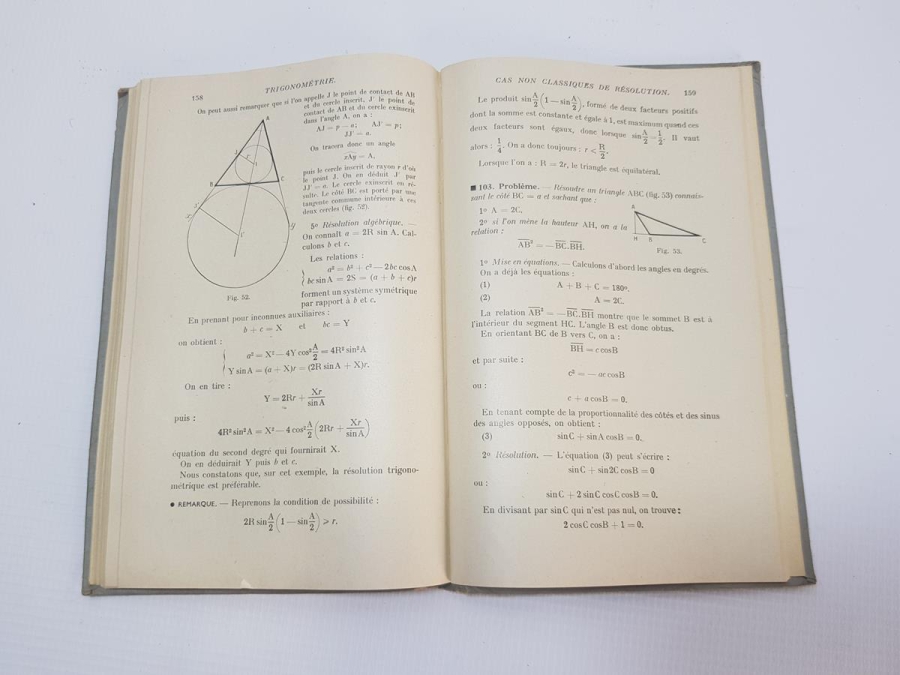 158
TRIGONOMÉTRIE.
On peut aussi remarquer que si l'on appelle J le point de contact de AB
et du cercle inscrit, J' le point de
contact de AB et du cercle exinscrit
dans l'angle A, on a :
AJ = p — a; AJ' = p;
JJ' = a.
On tracera donc un angle
xAy = A,
puis le cercle inscrit de rayon r d'où
le point J. On en déduit J' par
JJ' = a. Le cercle exinscrit en ré-
sulte. Le côté BC est porté par une
tangente commune intérieure à ces
deux cercles (fig. 52).
A
B
C
J'
x
y
I'
Fig. 52.
5º Résolution algébrique. —
On connaît a = 2R sin A. Cal-
culons b et c.
Les relations :
a² = b² + c² — 2bc cos A
bc sin A = 2S = (a + b + c)r
forment un système symétrique
par rapport à b et c.
En prenant pour inconnues auxiliaires :
b + c = X et bc = Y
on obtient :
a² = X² — 4Y cos² A/2 = 4R² sin² A
Y sin A = (a + X)r = (2R sin A + X)r.
On en tire :
Y = 2Rr + Xr/sin A
puis :
4R² sin² A = X² — 4 cos² A/2 (2Rr + Xr/sin A)
équation du second degré qui fournirait X.
On en déduirait Y puis b et c.
Nous constatons que, sur cet exemple, la résolution trigono-
métrique est préférable.
● REMARQUE. — Reprenons la condition de possibilité :
2R sin A/2 (1 — sin A/2) ⩾ r.
CAS NON CLASSIQUES DE RÉSOLUTION.
159
Le produit sin A/2 (1 — sin A/2), formé de deux facteurs positifs
dont la somme est constante et égale à 1, est maximum quand ces
deux facteurs sont égaux, donc lorsque sin A/2 = 1/2. Il vaut
alors : 1/4. On a donc toujours : r < R/2.
Lorsque l'on a : R = 2r, le triangle est équilatéral.
■ 103. Problème. — Résoudre un triangle ABC (fig. 53) connais-
sant le côté BC = a et sachant que :
1º A = 2C,
2º si l'on mène la hauteur AH, on a la
relation :
AB² = — BC.BH.
A
H
B
C
Fig. 53.
1º Mise en équations. — Calculons d'abord les angles en degrés.
On a déjà les équations :
(1) A + B + C = 180º,
(2) A = 2C.
La relation AB² = — BC.BH montre que le sommet B est à
l'intérieur du segment HC. L'angle B est donc obtus.
En orientant BC de B vers C, on a :
BH = c cos B
et par suite :
c² = — ac cos B
ou :
c + a cos B = 0.
En tenant compte de la proportionnalité des côtés et des sinus
des angles opposés, on obtient :
(3) sin C + sin A cos B = 0.
2º Résolution. — L'équation (3) peut s'écrire :
sin C + sin 2C cos B = 0
ou :
sin C + 2 sin C cos C cos B = 0.
En divisant par sin C qui n'est pas nul, on trouve :
2 cos C cos B + 1 = 0.